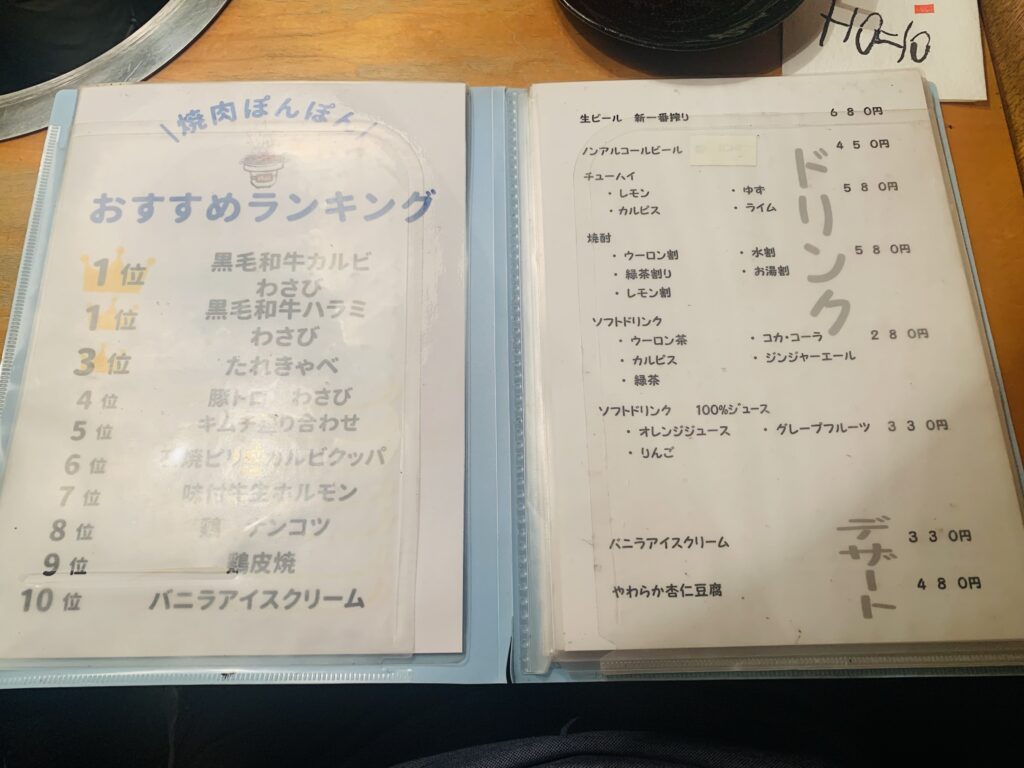 HO=10
\焼肉ぽんぽん/
おすすめランキング
1位 黒毛和牛カルビ
わさび
1位 黒毛和牛ハラミ
わさび
3位 たれきゃべ
4位 豚トロ わさび
5位 キムチ盛り合わせ
6位 焼ビリ カルビクッパ
7位 味付牛生ホルモン
8位 鶏 ゲンコツ
9位 鶏皮焼
10位 バニラアイスクリーム
ドリンク
生ビール 新一番搾り 680円
ノンアルコールビール 450円
チューハイ 580円
・レモン ・ゆず
・カルピス ・ライム
焼酎 580円
・ウーロン割 ・水割
・緑茶割り ・お湯割
・レモン割
ソフトドリンク 280円
・ウーロン茶 ・コカ・コーラ
・カルピス ・ジンジャーエール
・緑茶
ソフトドリンク 100%ジュース
・オレンジジュース ・グレープフルーツ 330円
・りんご
デザート
バニラアイスクリーム 330円
やわらか杏仁豆腐 480円